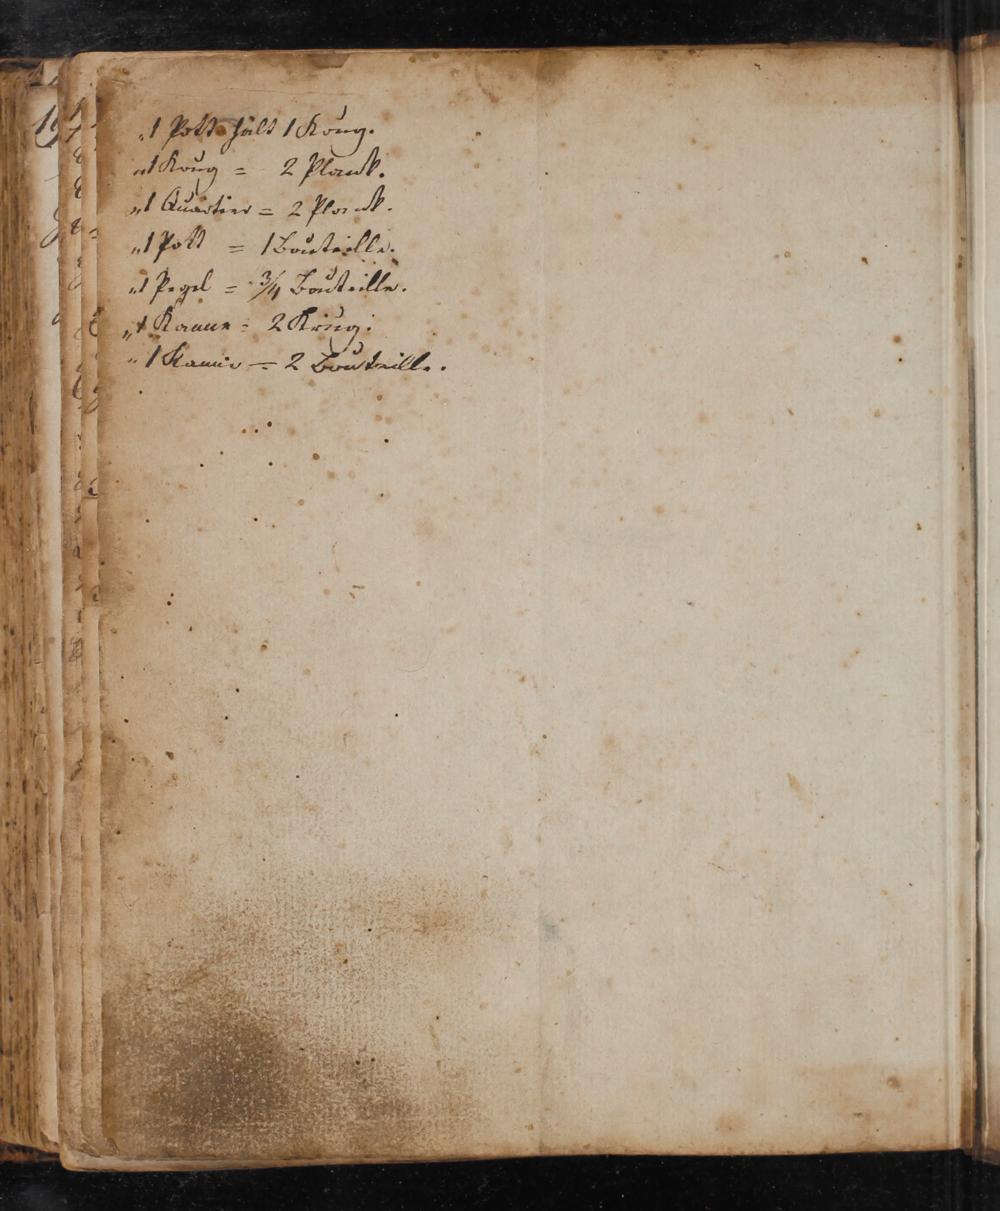 „1 Pott hält 1 Krug.
„1 Krug = 2 Plank.
„1 Quartier = 2 Plank.
„1 Pott = 1 Bouteille.
„1 Pegel = 3/4 Bouteille.
„1 Kanne = 2 Krug.
„1 Kanne = 2 Bouteille.
19